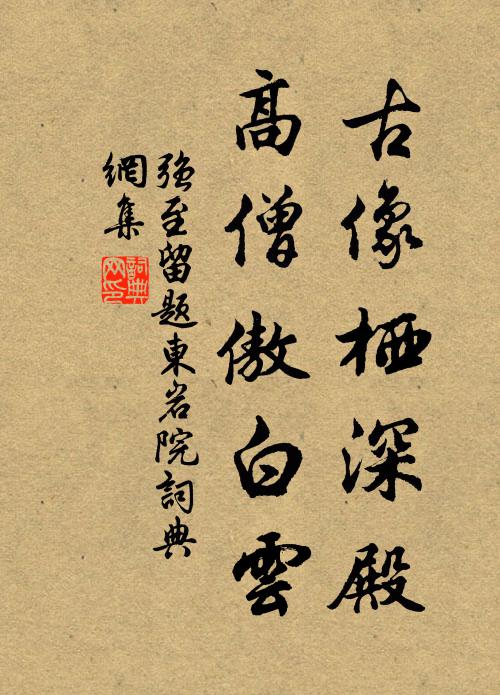 古像栖深殿
高僧傲白雲
強至留題東岩院詞典
網集
詞典
网印